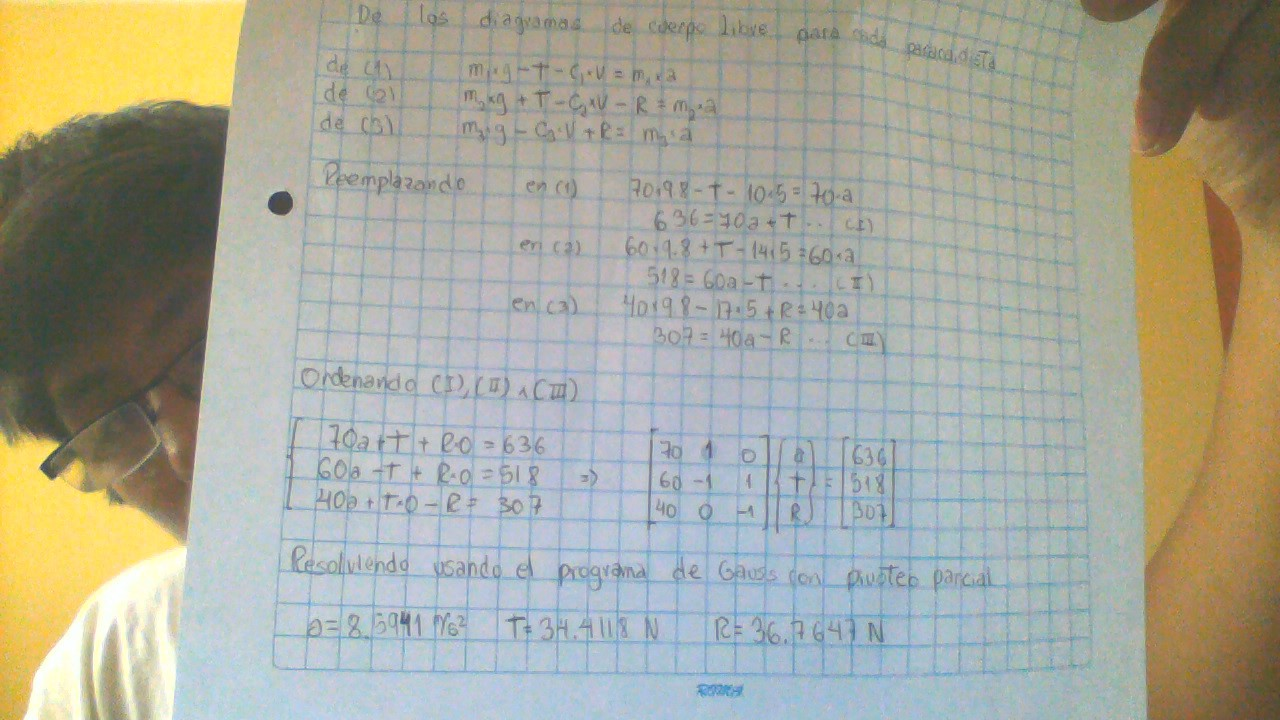 De los diagramas de cuerpo libre para cada paracaidista
de (1) m₁×g - T - C₁×V = m₁×a
de (2) m₂×g + T - C₂×V - R = m₂×a
de (3) m₃×g - C₃×V + R = m₃×a
Reemplazando en (1) 70×9.8 - T - 10×5 = 70×a
636 = 70a + T .. (I)
en (2) 60×9.8 + T - 14×5 = 60×a
518 = 60a - T ... (II)
en (3) 40×9.8 - 17×5 + R = 40a
307 = 40a - R .. (III)
Ordenando (I), (II) ∧ (III)
70a + T + R·0 = 636
60a - T + R·0 = 518 => [70 1 0; 60 -1 1; 40 0 -1] {a; T; R} = [636; 518; 307]
40a + T·0 - R = 307
Resolviendo usando el programa de Gauss con pivoteo parcial
a = 8.5941 m/s² T = 34.4118 N R = 36.7647 N